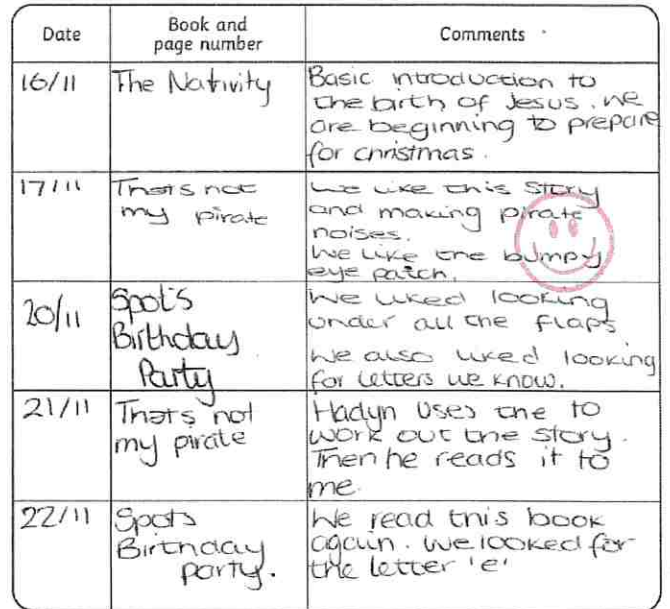 Date
Book and
page number
Comments
16/11
The Nativity
Basic introduction to
the birth of Jesus. We
are beginning to prepare
for christmas.
17/11
Thats not
my pirate
We like this story
and making pirate
noises.
We like the bumpy
eye patch.
20/11
Spot's
Birthday
Party
We liked looking
under all the flaps
We also liked looking
for letters we know.
21/11
Thats not
my pirate
Hadyn uses the to
work out the story.
Then he reads it to
me.
22/11
Spots
Birthday
party.
We read this book
again. We looked for
the letter 'e'